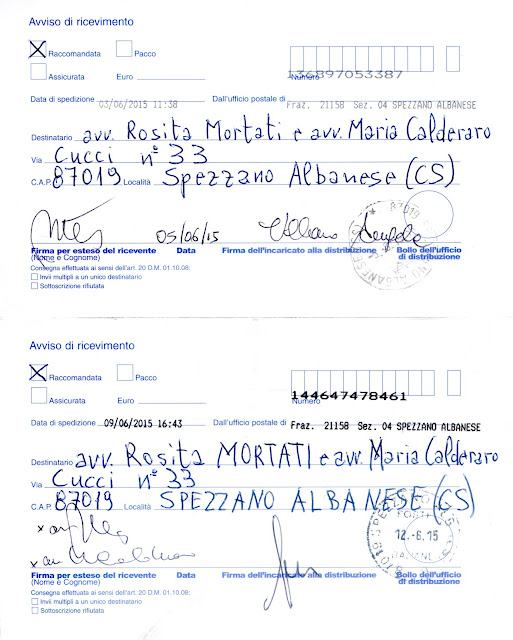 Avviso di ricevimento
X Raccomandata Pacco
Assicurata Euro
136897053387
Numero
Data di spedizione 03/06/2015 11:38 Dall'ufficio postale di Fraz. 21158 Sez. 04 SPEZZANO ALBANESE
Destinatario avv. Rosita Mortati e avv. Maria Calderaro
Via Cucci n° 33
C.A.P. 87019 Località Spezzano Albanese (CS)
05/06/15
87019
Firma per esteso del ricevente Data Firma dell'incaricato alla distribuzione Bollo dell'ufficio di distribuzione
(Nome e Cognome)
Consegna effettuata ai sensi dell'art. 20 D.M. 01.10.08:
Invii multipli a un unico destinatario
Sottoscrizione rifiutata
Avviso di ricevimento
X Raccomandata Pacco
Assicurata Euro
144647478461
Numero
Data di spedizione 09/06/2015 16:43 Dall'ufficio postale di Fraz. 21158 Sez. 04 SPEZZANO ALBANESE
Destinatario avv. Rosita MORTATI e avv. Maria Calderaro
Via Cucci n° 33
C.A.P. 87019 Località SPEZZANO ALBANESE (CS)
12.-6.15
Firma per esteso del ricevente Data Firma dell'incaricato alla distribuzione Bollo dell'ufficio di distribuzione
(Nome e Cognome)
Consegna effettuata ai sensi dell'art. 20 D.M. 01.10.08:
Invii multipli a un unico destinatario
Sottoscrizione rifiutata